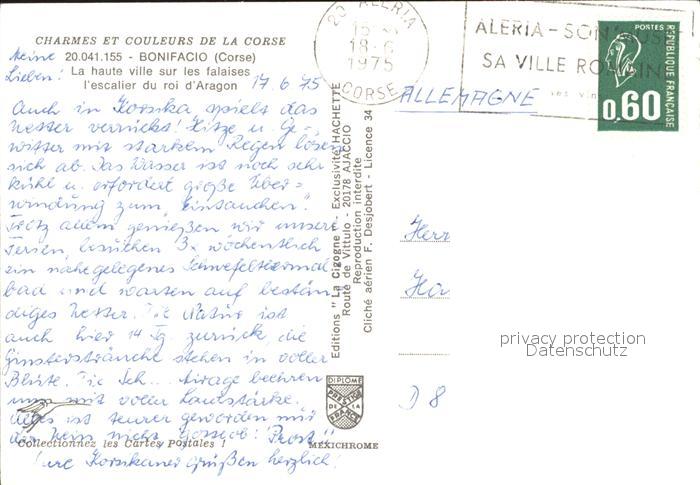 CHARMES ET COULEURS DE LA CORSE
20.041.155 - BONIFACIO (Corse)
La haute ville sur les falaises
l'escalier du roi d'Aragon
Meine
Lieben! 17.6.75
Auch in Korsika spielt das
Wetter verrückt! Hitze u. Ge-
witter mit starkem Regen lösen
sich ab. Das Wasser ist noch sehr
kühl u. erfordert große Über=
windung zum „Eintauchen".
Trotz allem genießen wir unsere
Ferien, besuchen 3x wöchentlich
ein nahegelegenes Schwefelthermal
bad und warten auf bestän
diges Wetter. Die Natur ist
auch hier 14 Tg. zurück, die
Ginstersträucher stehen in voller
Blüte. Die
mit voller Lautstärke.
Alles ist teurer geworden nur
der Wein nicht, gottlob! „Prost"
Korsikaner grüßen herzlich!
Collectionnez les Cartes Postales !
Editions "La Cigogne" - Exclusivité HACHETTE
Route de Vittulo - 20178 AJACCIO
Reproduction interdite
Cliché aérien F. Desjobert - Licence 34
DIPLOME
PRESTIGE
DE LA
FRANCE
MEXICHROME
20 ALERIA
18-6
1975
CORSE
ALERIA - SON
SA VILLE ROMAINE
POSTES
REPUBLIQUE FRANÇAISE
0,60
ALLEMAGNE
Herr
Ha
D 8
privacy protection
Datenschutz